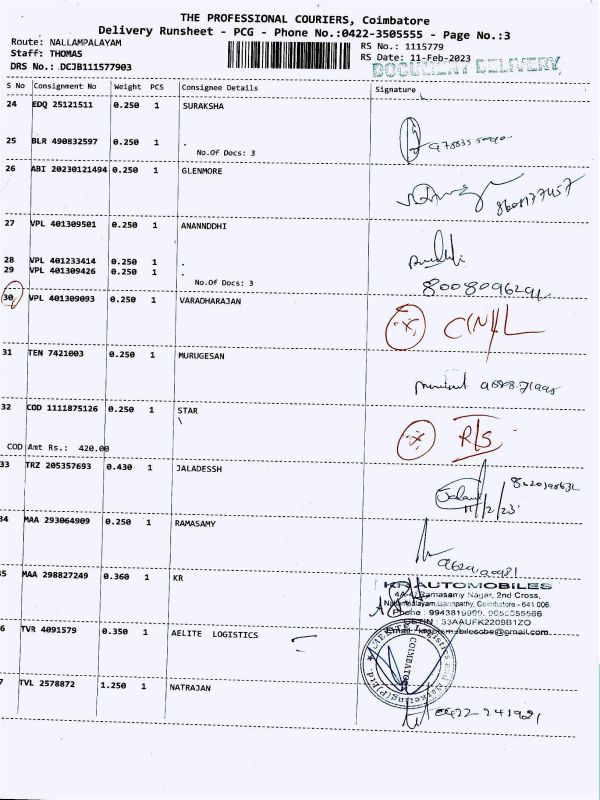 THE PROFESSIONAL COURIERS, Coimbatore
Delivery Runsheet - PCG - Phone No.:0422-3505555 - Page No.:3
Route: NALLAMPALAYAM
RS No.: 1115779
Staff: THOMAS
RS Date: 11-Feb-2023
DRS No.: DCJB111577903
DOCUMENT DELIVERY
S No Consignment No Weight PCS Consignee Details Signature
24 EDQ 25121511 0.250 1 SURAKSHA
25 BLR 490832597 0.250 1 .
No.Of Docs: 3
26 ABI 20230121494 0.250 1 GLENMORE
27 VPL 401309501 0.250 1 ANANNDDHI
28 VPL 401233414 0.250 1 .
29 VPL 401309426 0.250 1 .
No.Of Docs: 3
8008096291
30 VPL 401309093 0.250 1 VARADHARAJAN
31 TEN 7421003 0.250 1 MURUGESAN
32 COD 1111875126 0.250 1 STAR
\
R/S
COD Amt Rs.: 420.00
33 TRZ 205357693 0.430 1 JALADESSH
11/2/23
34 MAA 293064909 0.250 1 RAMASAMY
35 MAA 298827249 0.360 1 KR
KR AUTOMOBILES
Ramasamy Nagar, 2nd Cross,
Ganpathy, Coimbatore - 641 006.
Phone : 9943819999,
GSTIN : 33AAUFK2209B1ZO
6 TVR 4091579 0.350 1 AELITE LOGISTICS
COIMBATORE
7 TVL 2578872 1.250 1 NATRAJAN